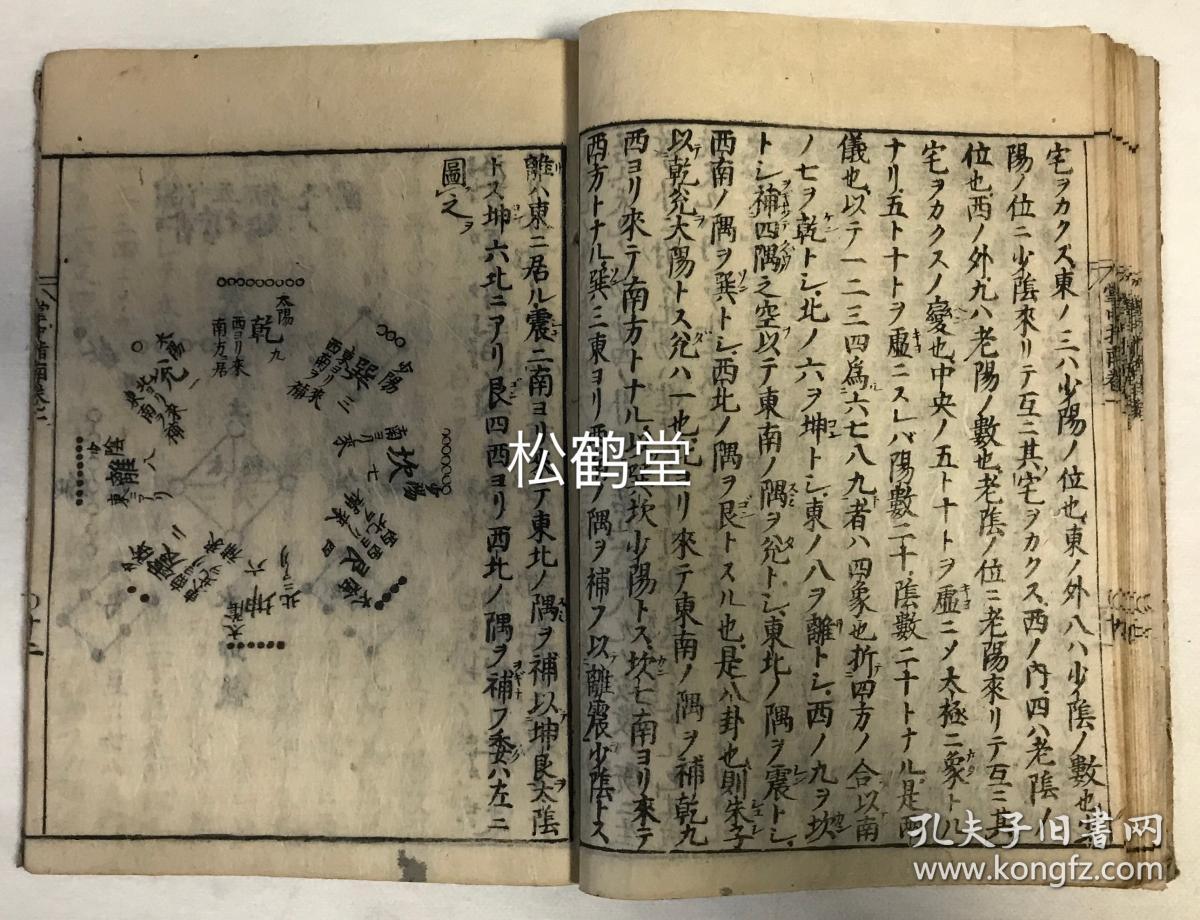 宅ヲカクス東ノ三ハ少陽ノ位也東ノ外八ハ少陰ノ數也
陽ノ位ニ少陰來リテ互ニ其宅ヲカクス西ノ内四ハ老陰ノ
位也西ノ外九ハ老陽ノ數也老陰ノ位ニ老陽來リテ互ニ其
宅ヲカクスノ變也中央ノ五ト十トヲ虛ニメ太極ニ象トハ
ナリ五ト十トヲ虛ニスレハ陽數二十陰數二十トナル是兩
儀也以テ一二三四爲六七八九者ハ四象也折四方ノ合以南
ノ七ヲ乾トシ北ノ六ヲ坤トシ東ノ八ヲ離トシ西ノ九ヲ坎
トシ補四隅之空以テ東南ノ隅ヲ兊トシ東北ノ隅ヲ震トシ
西南ノ隅ヲ巽トシ西北ノ隅ヲ艮トスル也是八卦也則朱子
以乾兊太陽トス兊ハ一也北ヨリ來テ東南ノ隅ヲ補乾九
西ヨリ來テ南方トナル
坎少陽トス坎七南ヨリ來テ
西方トナル巽三東ヨリ西
ノ隅ヲ補フ以離震少陰トス
離八東ニ居ル震二南ヨリ
テ東北ノ隅ヲ補以坤艮太陰
トス坤六北ニアリ艮四西ヨリ西北ノ隅ヲ補フ委ハ左ニ
圖之ヲ
太陽
乾九
西ヨリ來
南方居
少陽
巽三
東ヨリ來
西南ヲ補
坎七
南ヨリ來
少陽
太陽
兊一
少陰
離八
東ニアリ
艮四
太陰
坤六
北ニアリ
太陰
松鹤堂
孔夫子旧书网
www.kongfz.com